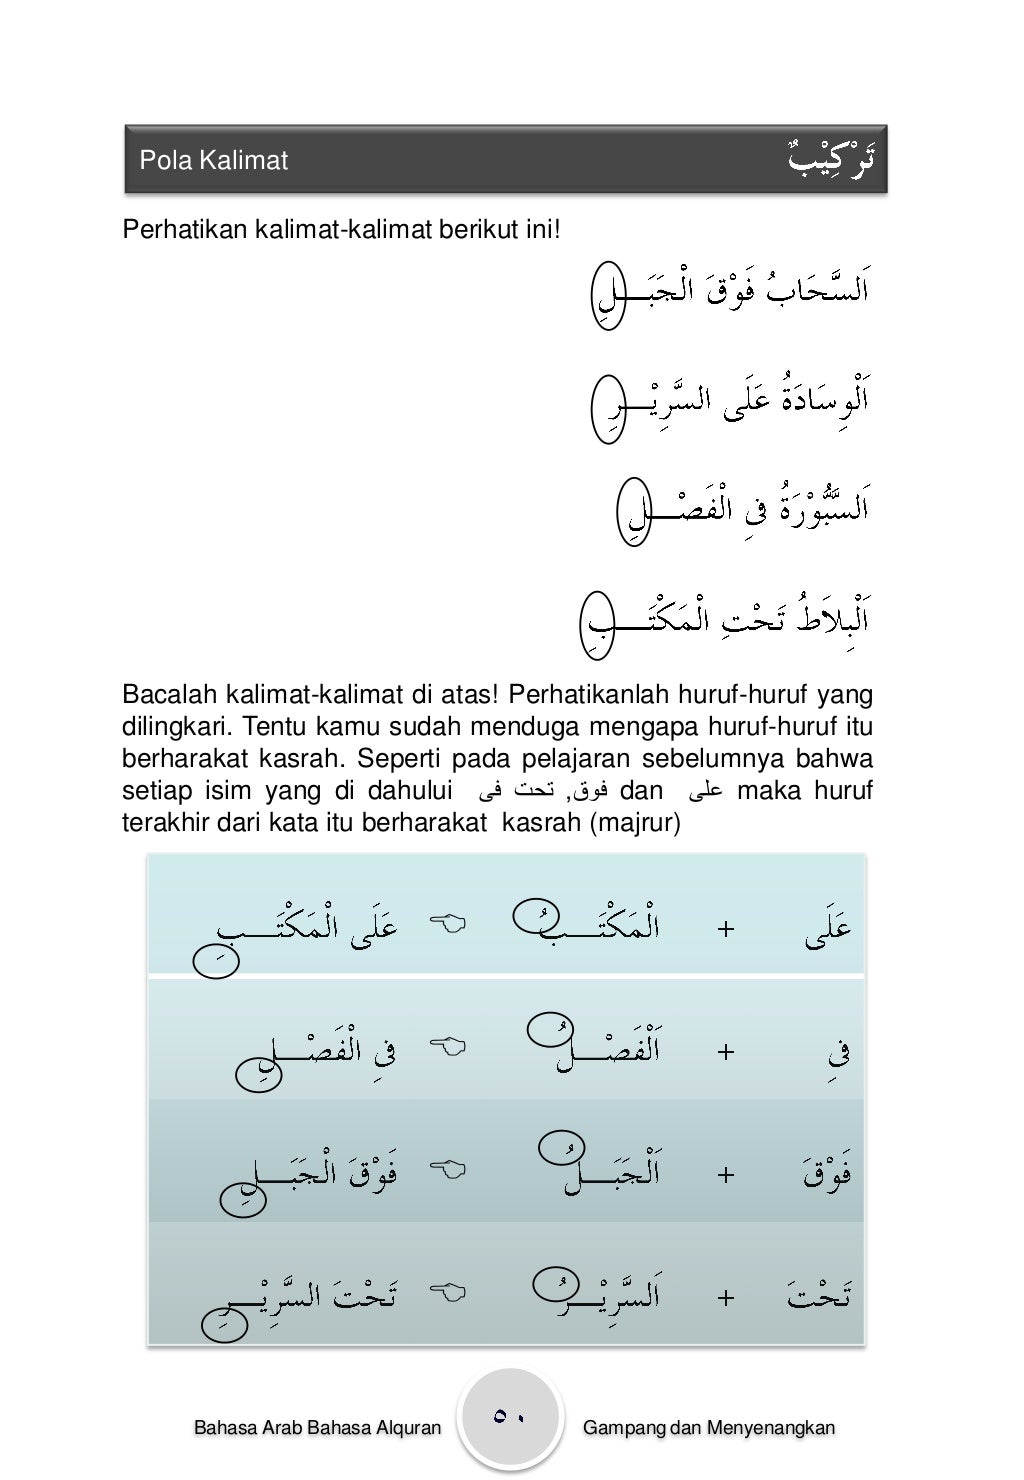 Pola Kalimat تَرْكِيْبٌ
Perhatikan kalimat-kalimat berikut ini!
اَلسَّحَابُ فَوْقَ الْجَبَـــلِ
اَلْوِسَادَةُ عَلَى السَّرِيْـــرِ
اَلسَّبُّوْرَةُ فىِ الْفَصْـــلِ
اَلْبِلاَطُ تَحْتِ الْمَكْتَـــبِ
Bacalah kalimat-kalimat di atas! Perhatikanlah huruf-huruf yang
dilingkari. Tentu kamu sudah menduga mengapa huruf-huruf itu
berharakat kasrah. Seperti pada pelajaran sebelumnya bahwa
setiap isim yang di dahului فوق, تحت فى dan على maka huruf
terakhir dari kata itu berharakat kasrah (majrur)
عَلَى + الْمَكْتَـــبُ ☜ عَلَى الْمَكْتَـــبِ
فىِ + اَلْفَصْـــلُ ☜ فىِ الْفَصْـــلِ
فَوْقَ + اَلْجَبَـــلُ ☜ فَوْقَ الْجَبَـــلِ
تَحْتَ + اَلسَّرِيْـــرُ ☜ تَحْتَ السَّرِيْـــرِ
Bahasa Arab Bahasa Alquran ٥٠ Gampang dan Menyenangkan